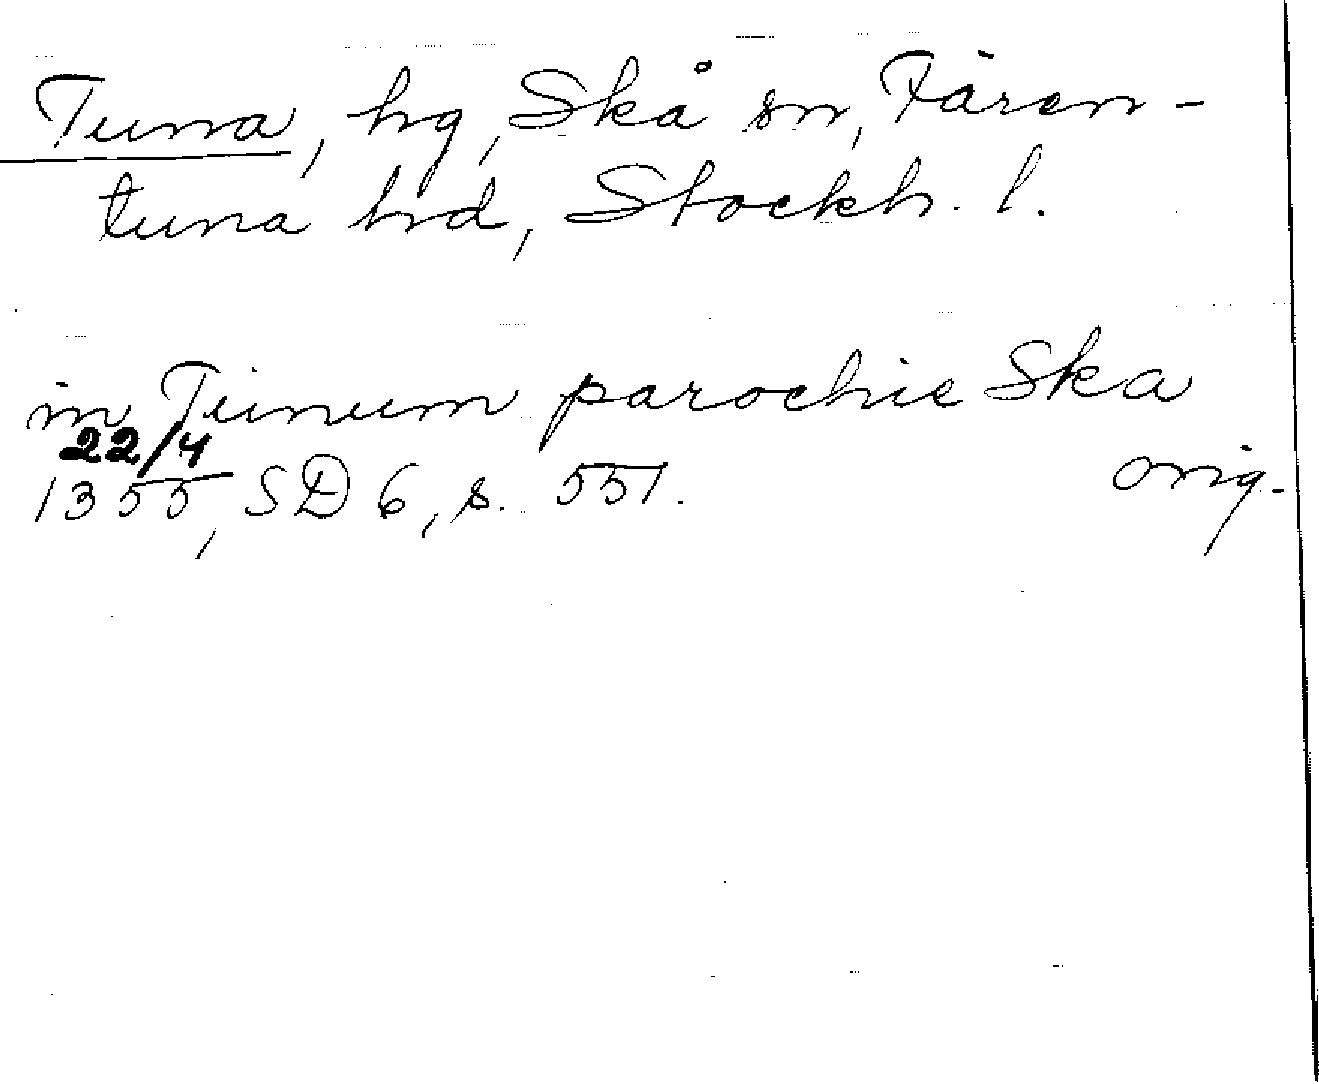 Tuna, hg, Skå sn, Fären-
tuna hd, Stockh. l.
in Tunum parochie Ska
22/4
1355, SD 6, s. 551. orig.